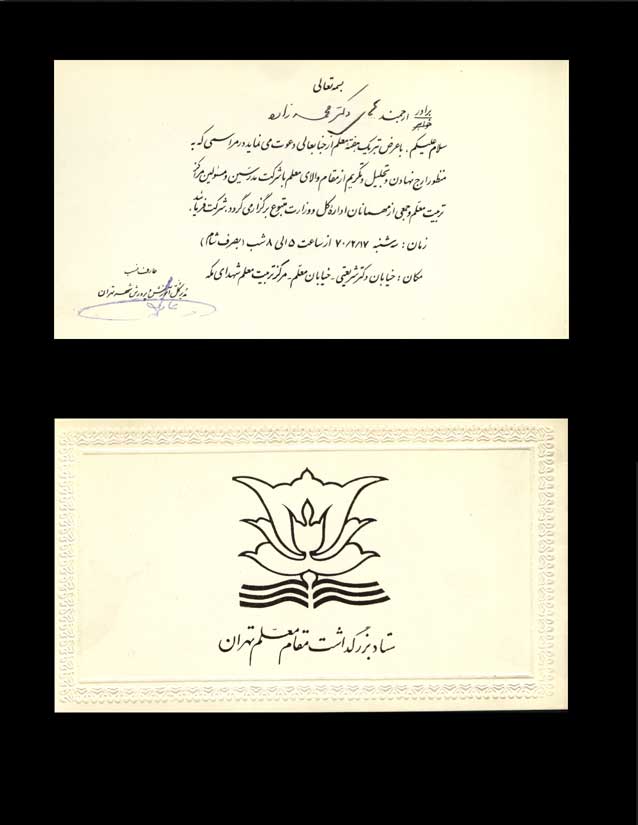 بسمه تعالی
برادر
خواهر
ارجمند دکتر
سلام علیکم. با عرض تبریک هفته معلم از جنابعالی دعوت می نماید در مراسمی که به
منظور ارج نهادن و تجلیل و تکریم از مقام والای معلم با شرکت مدرسین و مسئولین مراکز
تربیت معلم و جمعی از مهمانان اداره کل و وزارت متبوع برگزار می گردد. شرکت فرمائید.
زمان: سه شنبه ۷۰/۲/۱۷ از ساعت ۵ الی ۸ شب (بصرف شام)
مکان: خیابان دکتر شریعتی - خیابان معلم - مرکز تربیت معلم شهدای مکه
عارف نسب
مدیر کل آموزش و پرورش شهر تهران
ستاد بزرگداشت مقام معلم تهران